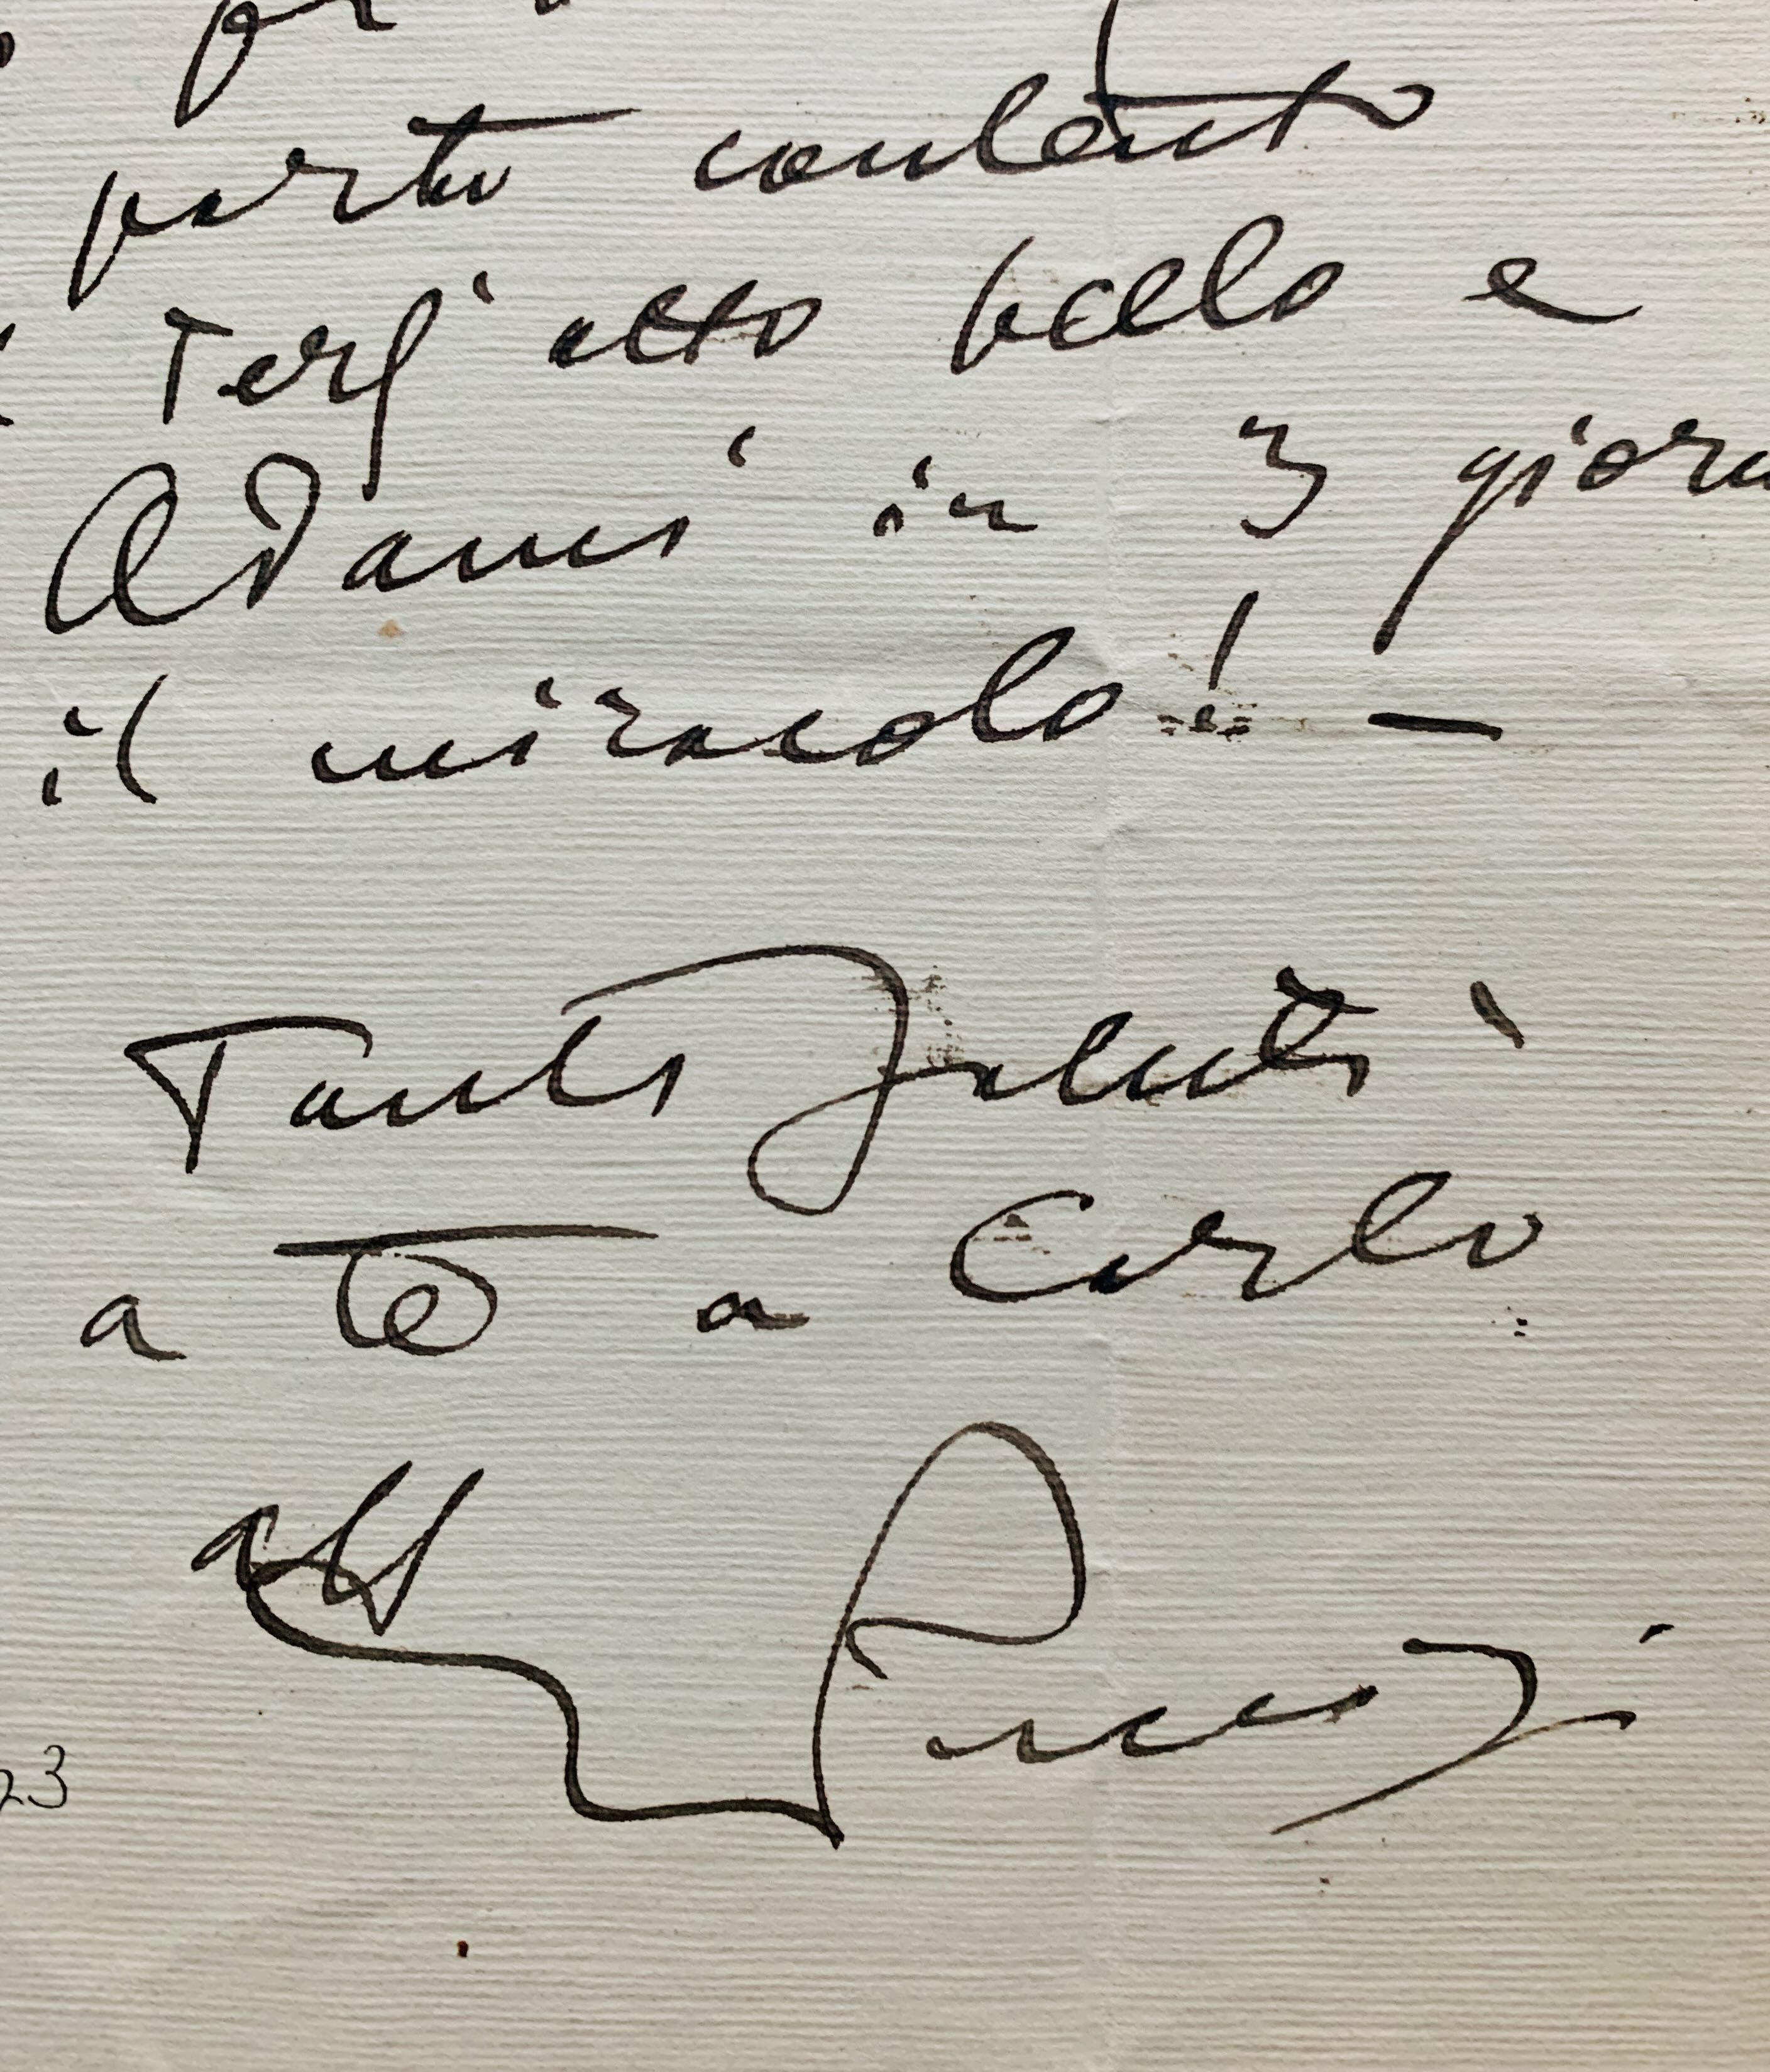 parto contento
Terz' atto bello e
Adami in 3 giorn
il miracolo! —
Tanti saluti
a te a Carlo
aff
Puccini
23